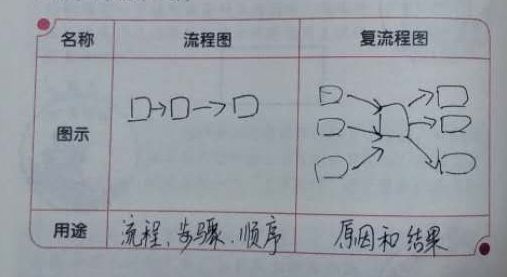 名称 流程图 复流程图
图示
用途 流程、步骤、顺序 原因和结果